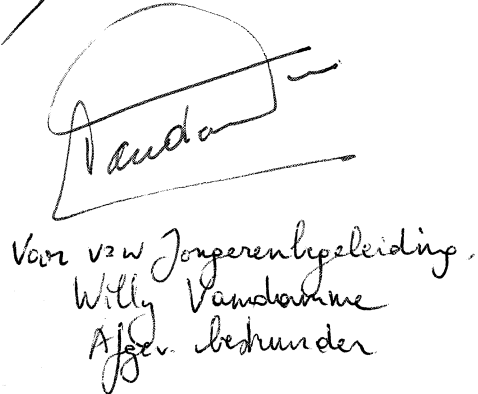 Vandam
Voor vzw Jongerenbegeleiding.
Willy Vandamme
Afgev. bestuurder